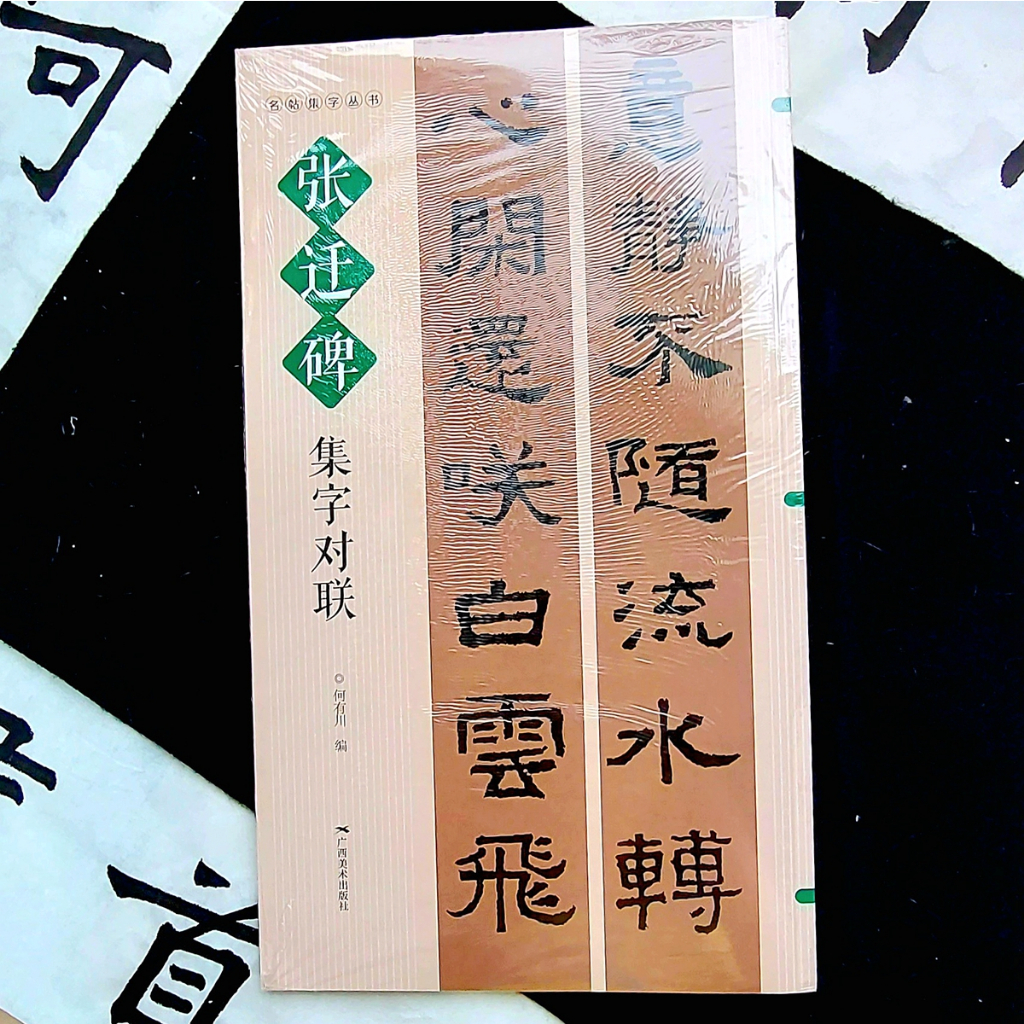 名帖集字丛书
张迁碑
集字对联
何有川 编
广西美术出版社
意静不随流水轉
心閑還咲白雲飛
可
首